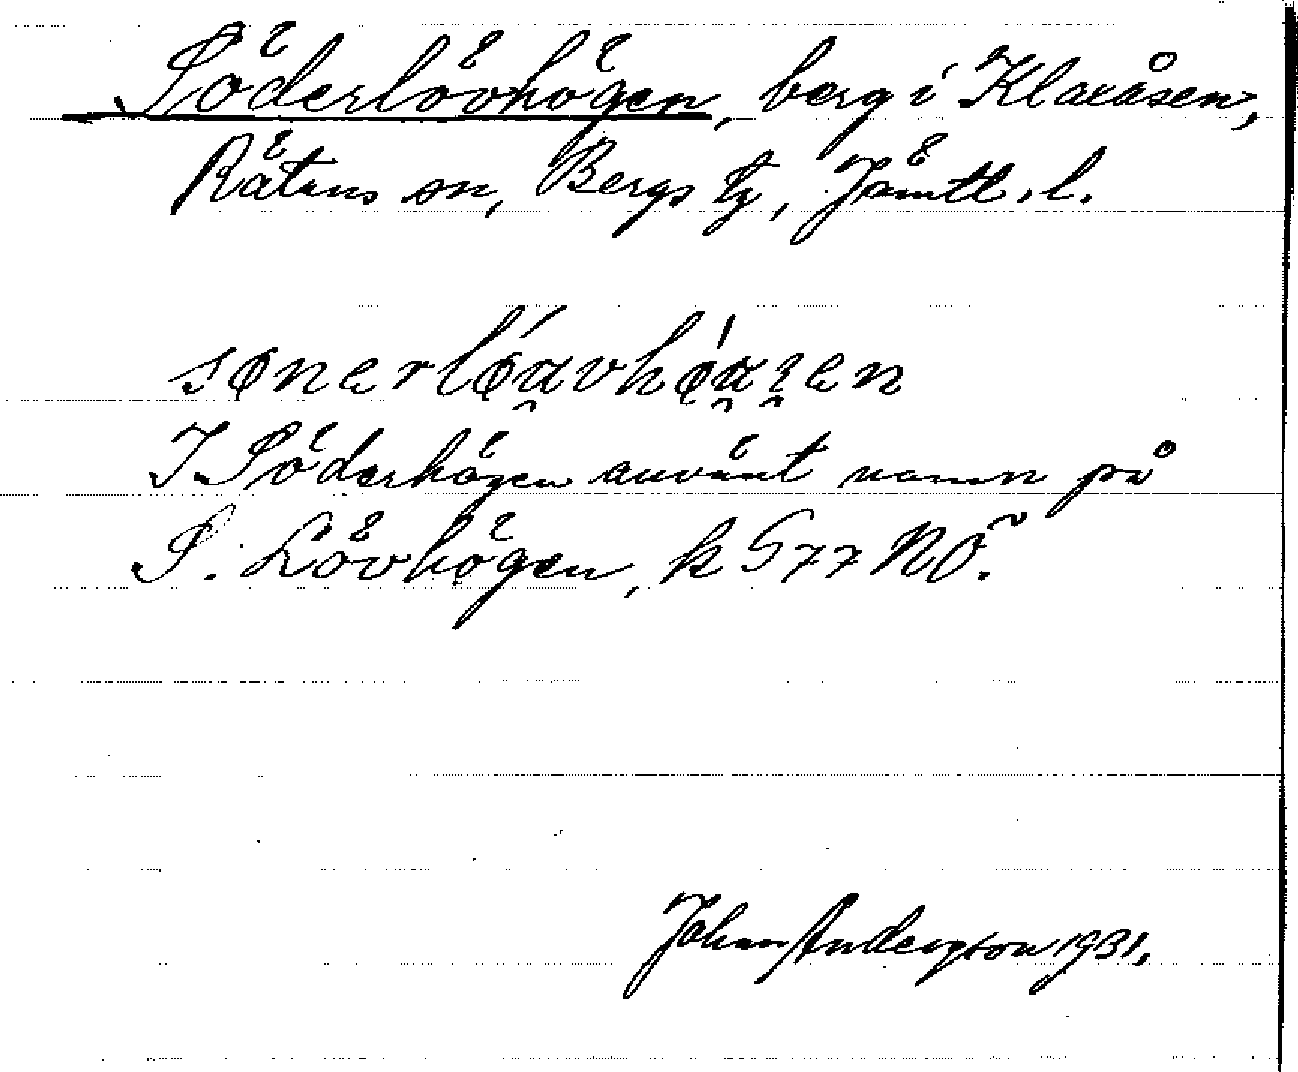 Söderlövhögen, berg i Klaxåsen,
Rätans sn, Bergs tg, Jämtl. l.
sønerlǿɑvhǿɑgen
I Söderhögen använt namn på
S. Lövhögen, k G77 NÖ.
Johan Andersson 1931.